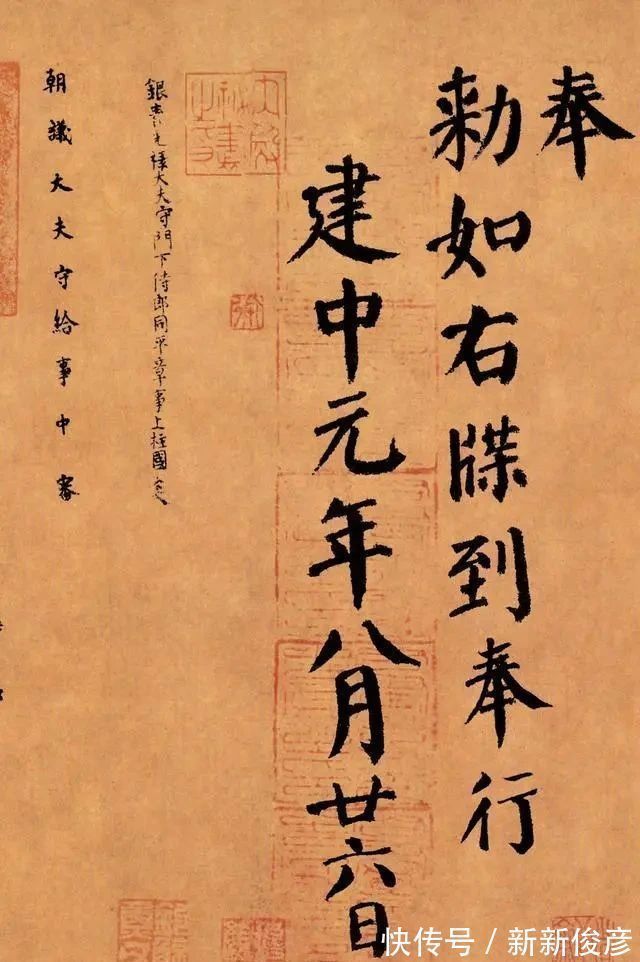 奉
勑如右牒到奉行
建中元年八月廿六日
銀青光祿大夫守門下侍郎同平章事上柱國
朝議大夫守給事中審
快传号 / 新新俊彦